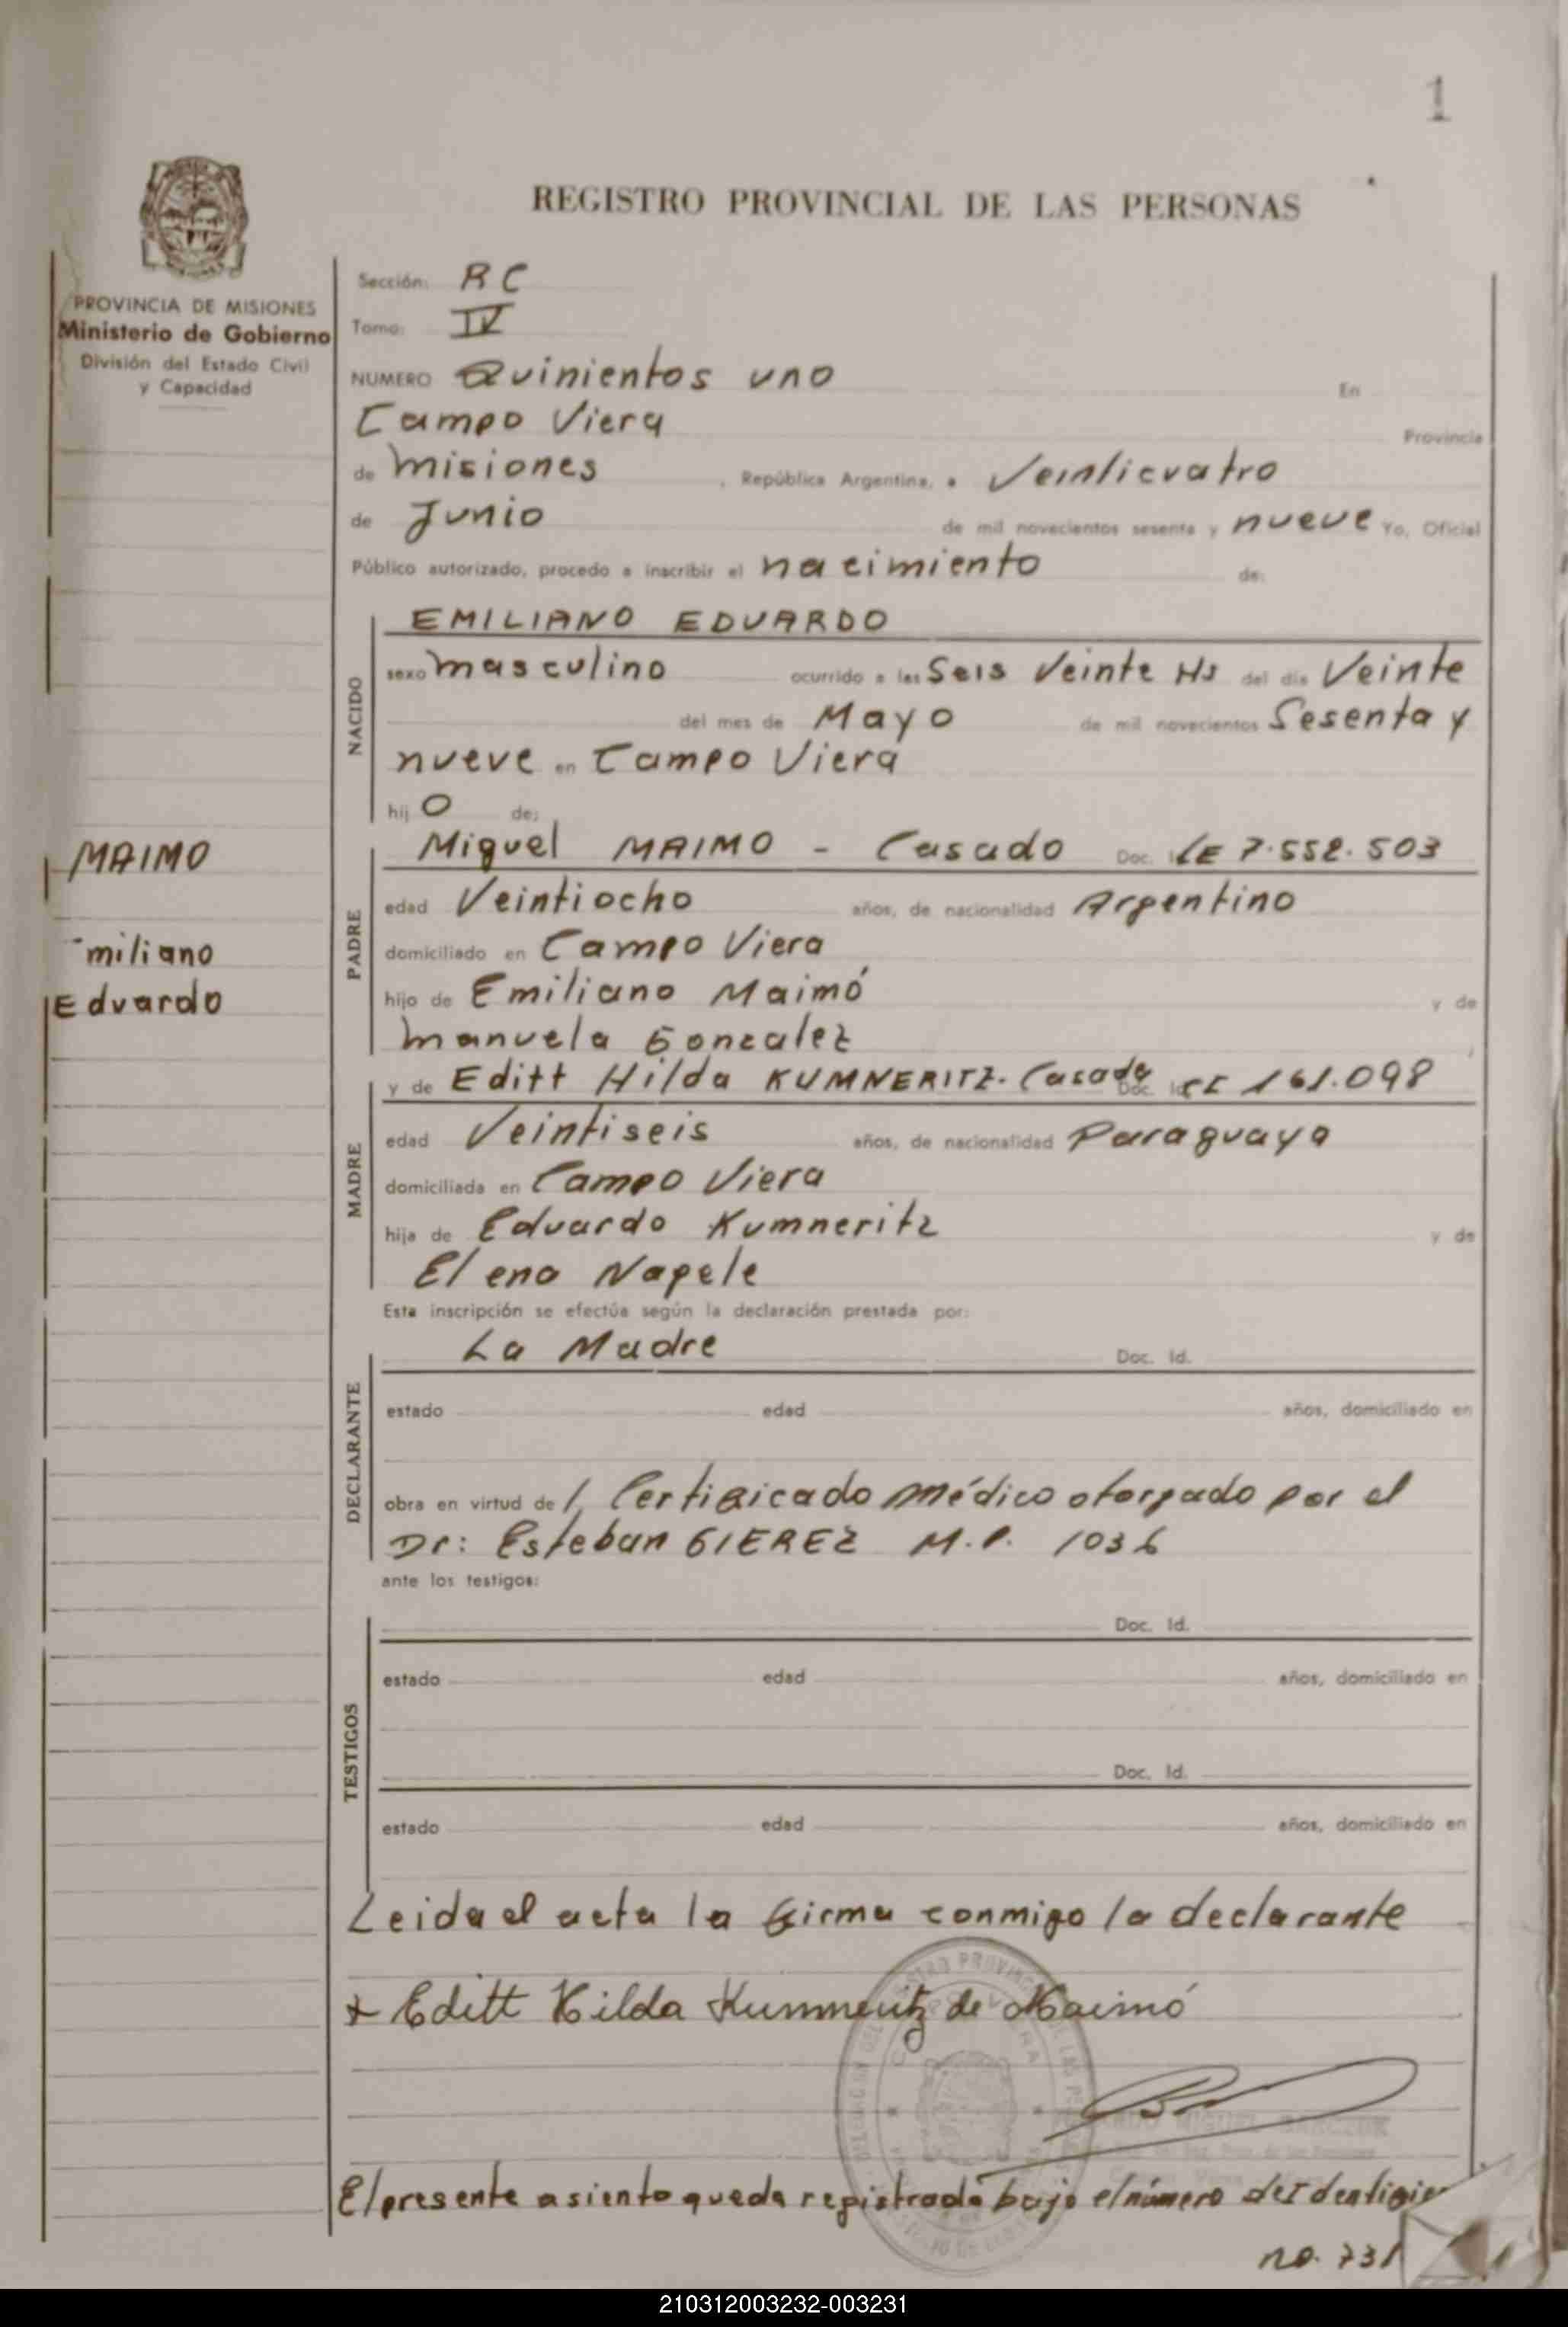 1
REGISTRO PROVINCIAL DE LAS PERSONAS
PROVINCIA DE MISIONES
Ministerio de Gobierno
División del Estado Civil
y Capacidad
Sección: RC
Tomo: IV
NUMERO Quinientos uno En
Campo Viera Provincia
de Misiones , República Argentina, a Veinticuatro
de Junio de mil novecientos sesenta y nueve Yo, Oficial
Público autorizado, procedo a inscribir el nacimiento de:
NACIDO
EMILIANO EDUARDO
sexo masculino ocurrido a las Seis Veinte Hs del día Veinte
del mes de Mayo de mil novecientos Sesenta y
nueve en Campo Viera
hij o de:
MAIMO
miliano
Eduardo
PADRE
Miguel MAIMO - Casado Doc. LE 7.552.503
edad Veintiocho años, de nacionalidad Argentino
domiciliado en Campo Viera
hijo de Emiliano Maimó y de
Manuela Gonzalez
MADRE
y de Editt Hilda KUMNERITZ. Casada Doc. Id. CI 161.098
edad Veintiseis años, de nacionalidad Paraguaya
domiciliada en Campo Viera
hija de Eduardo Kumneritz y de
Elena Napele
Esta inscripción se efectúa según la declaración prestada por:
DECLARANTE
La Madre Doc. Id.
estado edad años, domiciliado en
obra en virtud de 1, Certificado médico otorgado por el
Dr: Esteban GIEREZ M.P. 1036
ante los testigos:
TESTIGOS
Doc. Id.
estado edad años, domiciliado en
Doc. Id.
estado edad años, domiciliado en
Leida el acta la firma conmigo la declarante
Editt Hilda Kumneritz de Maimó
MIGUEL
El presente asiento queda registrado bajo el número de
no. 731
210312003232-003231